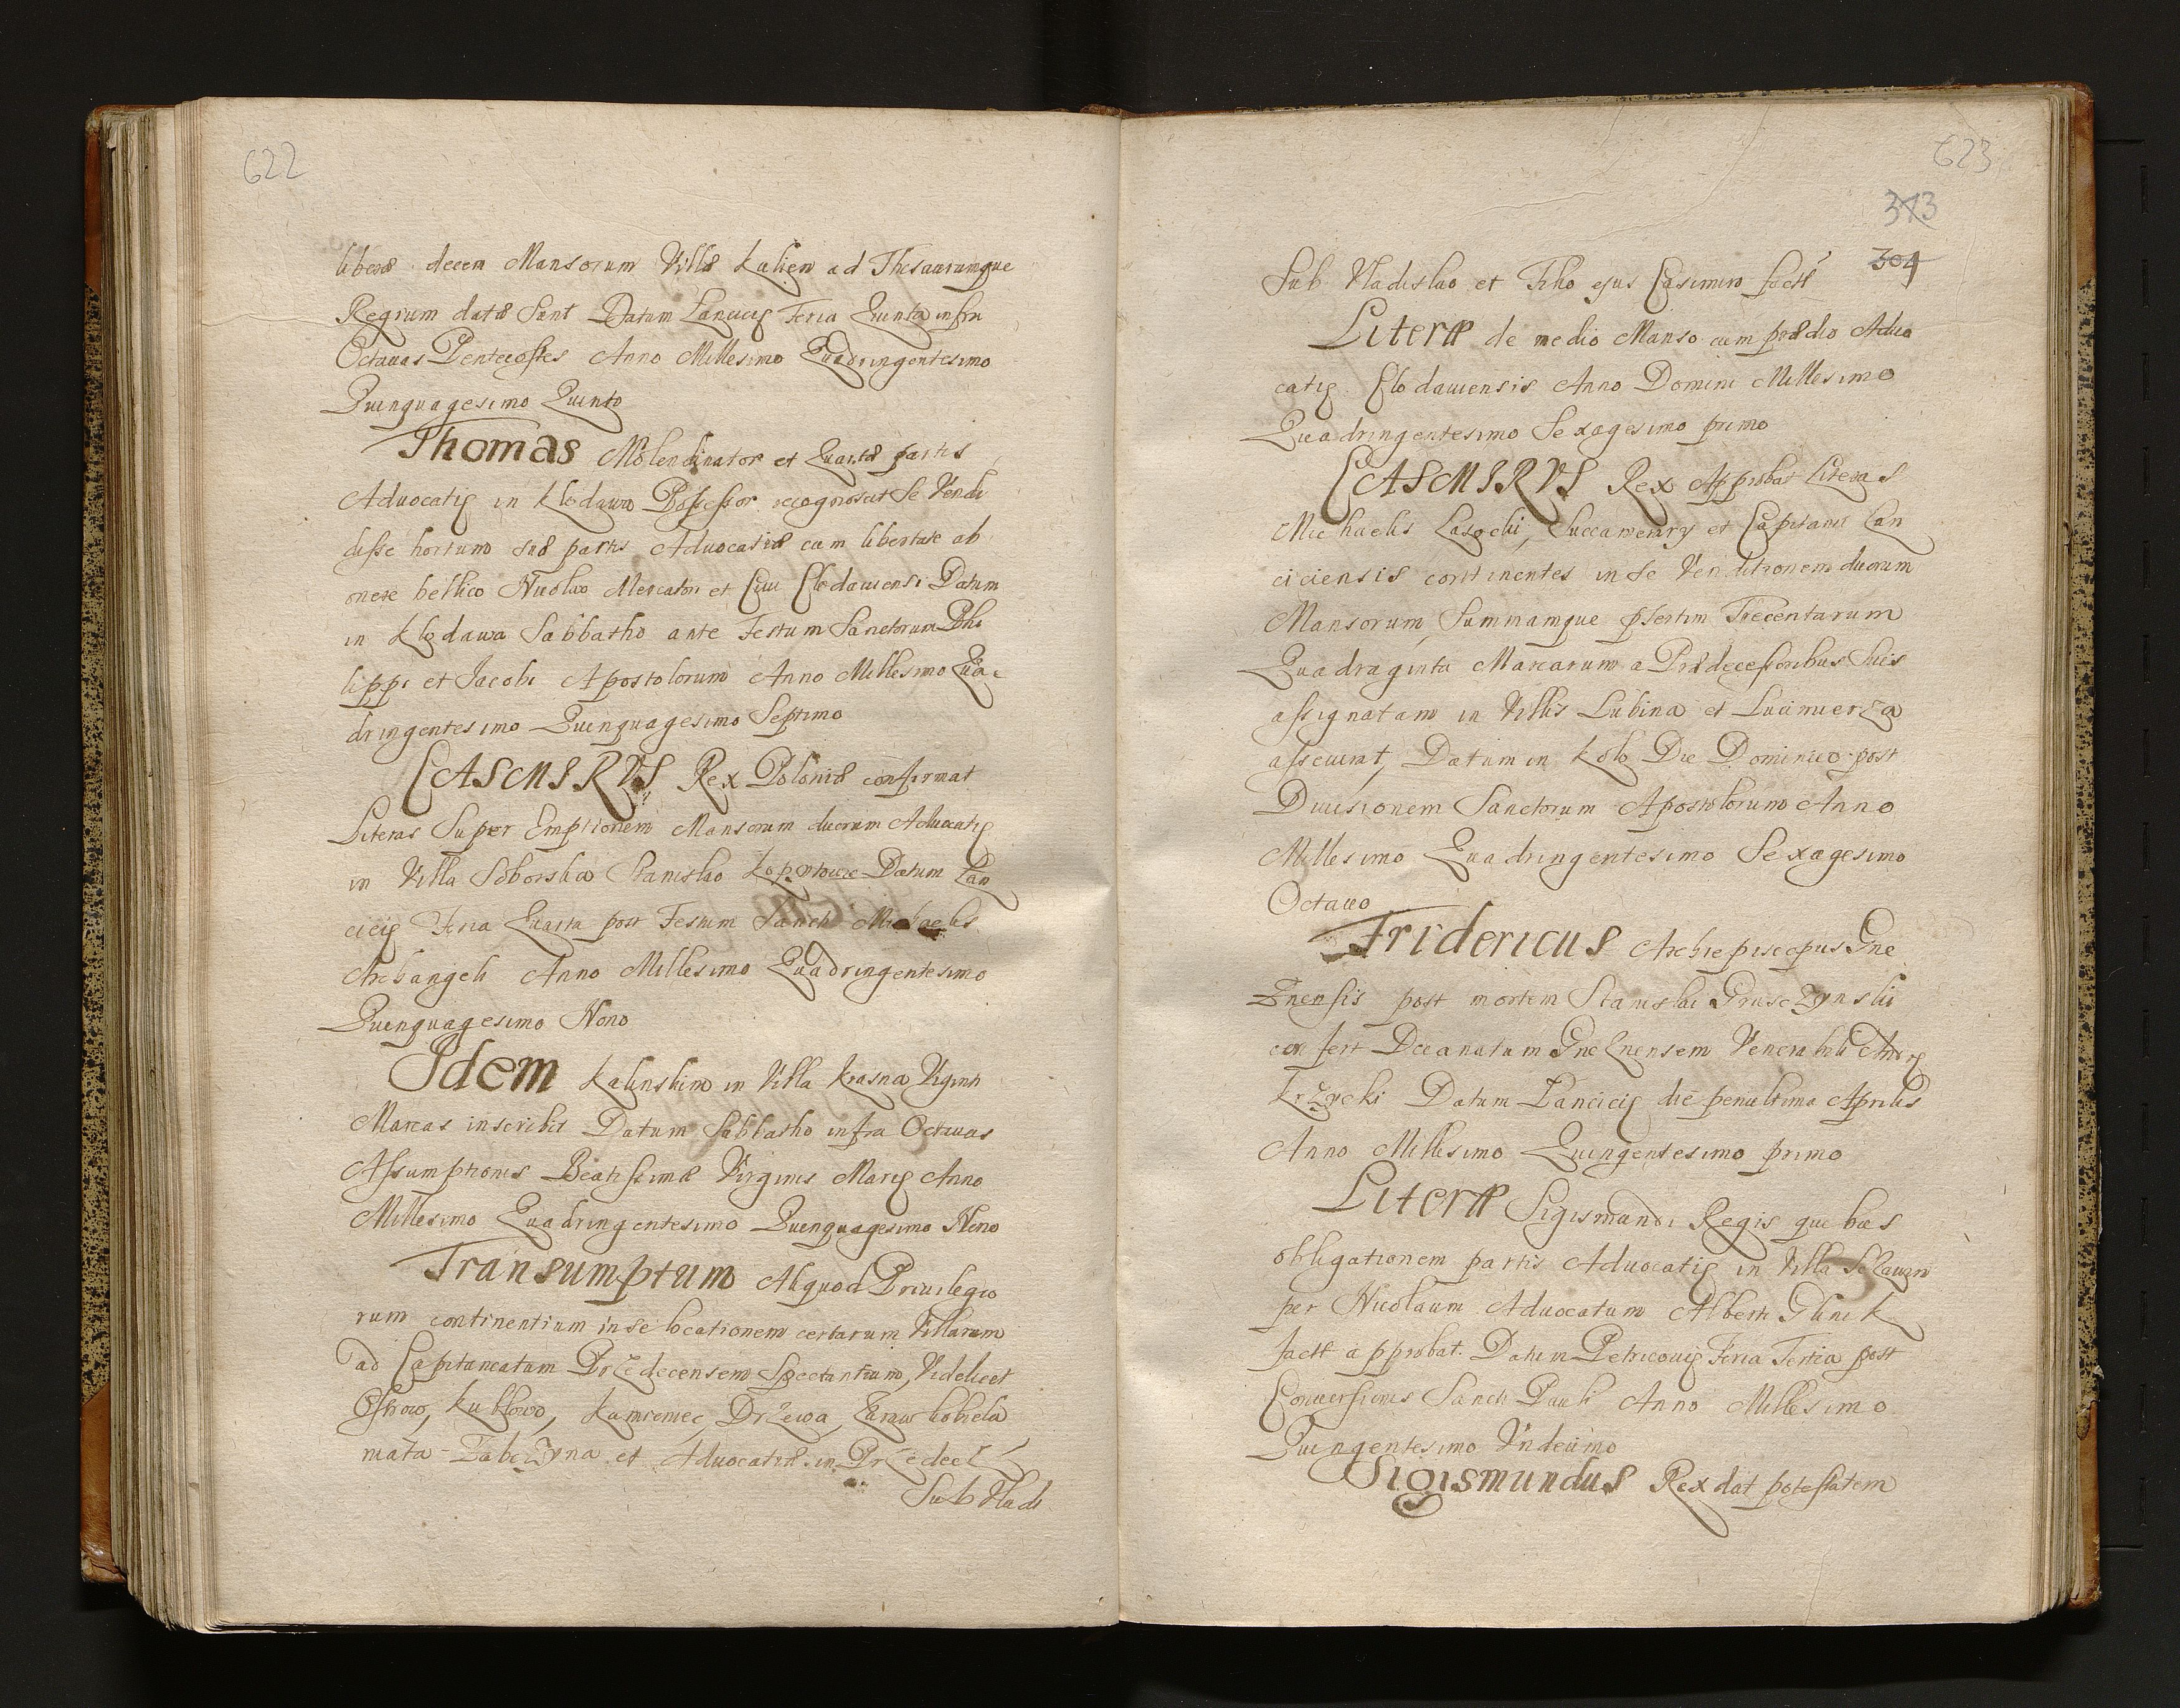 622
liberæ decem Mansorum Villæ Kalien ad Thesaurumque
Regium datæ sunt Datum Lanciciȩ Feria Quinta infra
Octauas Pentecostes Anno Millesimo Quadringentesimo
Quinquagesimo Quinto
Thomas Molendinator et Quartæ partis
Aduocatiȩ in Klodawa Possessor recognoscit se Vendi
disse hortum suæ partis Aduocatiæ cum libertate ab
onere bellico Nicolao Mercatori et Ciui Clodauiensi Datum
in Klodawa Sabbatho ante Festum Sanctorum Phi
lippi et Jacobi Apostolorum Anno Millesimo Qua-
dringentesimo Quinquagesimo Septimo
CASMIRVS Rex Poloniæ confirmat
Literas Super Emptionem Mansorum duorum Aduocatiȩ
in Villa Soborska Stanislao Datum Lan
ciciȩ Feria Quarta post Festum Sancti Michaelis
Archangeli Anno Millesimo Quadringentesimo
Quinquagesimo Nono
Idem Kalinskim in Villa Krasna Viginti
Marcas inscribit Datum Sabbatho infra Octauas
Assumptionis Beatissimæ Virginis Mariȩ Anno
Millesimo Quadringentesimo Quinquagesimo Nono
Transumptum Aliquod Priuilegio
rum continentium in se locationem certarum Villarum
ad Capitaneatum Przedecensem Spectantium, Videlicet
Kublowo, Kamieniec, Drzewa,
mała Zabczyna et Aduocatiæ in Przedecz
Sub Vladi
623
373
304
Sub Vladislao et Filio ejus Casimiro factæ
Literæ de medio Manso cum prædio Aduo
catiȩ Clodauiensis Anno Domini Millesimo
Quadringentesimo Sexagesimo primo
CASMIRVS Rex Approbat Literas
Michaelis Lasocki, Succamerarij et Capitanei Lan
ciciensis continentes in se Venditionem duorum
Mansorum, Summamque psertim Trecentarum
Quadraginta Marcarum a Prædecessoribus Suis
assignatam in Villis Lubina et Lucimierza
assecurat, Datum in Kolo Die Dominico post
Diuisionem Sanctorum Apostolorum Anno
Millesimo Quadringentesimo Sexagesimo
Octauo
Fridericus Archiepiscopus Gne
znensis post mortem Stanislai Gruszczynski
confert Decanatum Gneznensem Venerabili Andrȩ
Krzycki Datum Lanciciȩ die penultima Aprilis
Anno Millesimo Quingentesimo primo
Literæ Sigismundi Regis quibus
obligationem partis Aduocatiȩ in Villa
per Nicolaum Aduocatum Alberti Glinik
factæ approbat. Datum Petricouiȩ Feria Tertia post
Conuersionis Sancti Pauli Anno Millesimo
Quingentesimo Vndecimo
Sigismundus Rex dat potestatem